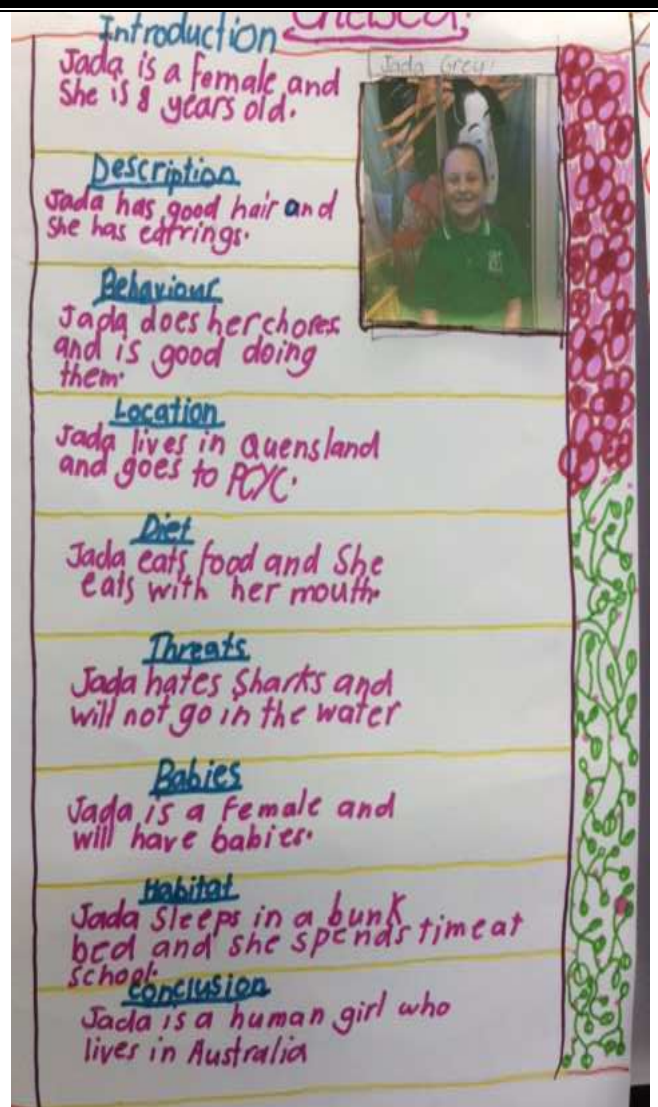 Introduction
Jada is a female and
She is 8 years old.
Jada Grey!
Description
Jada has good hair and
she has earrings.
Behaviour
Jada does her chores
and is good doing
them.
Location
Jada lives in Quensland
and goes to PCYC.
Diet
Jada eats food and She
eats with her mouth.
Threats
Jada hates Sharks and
will not go in the water
Babies
Jada is a Female and
will have babies.
Habitat
Jada Sleeps in a bunk
bed and she spends time at
school.
Conclusion
Jada is a human girl who
lives in Australia